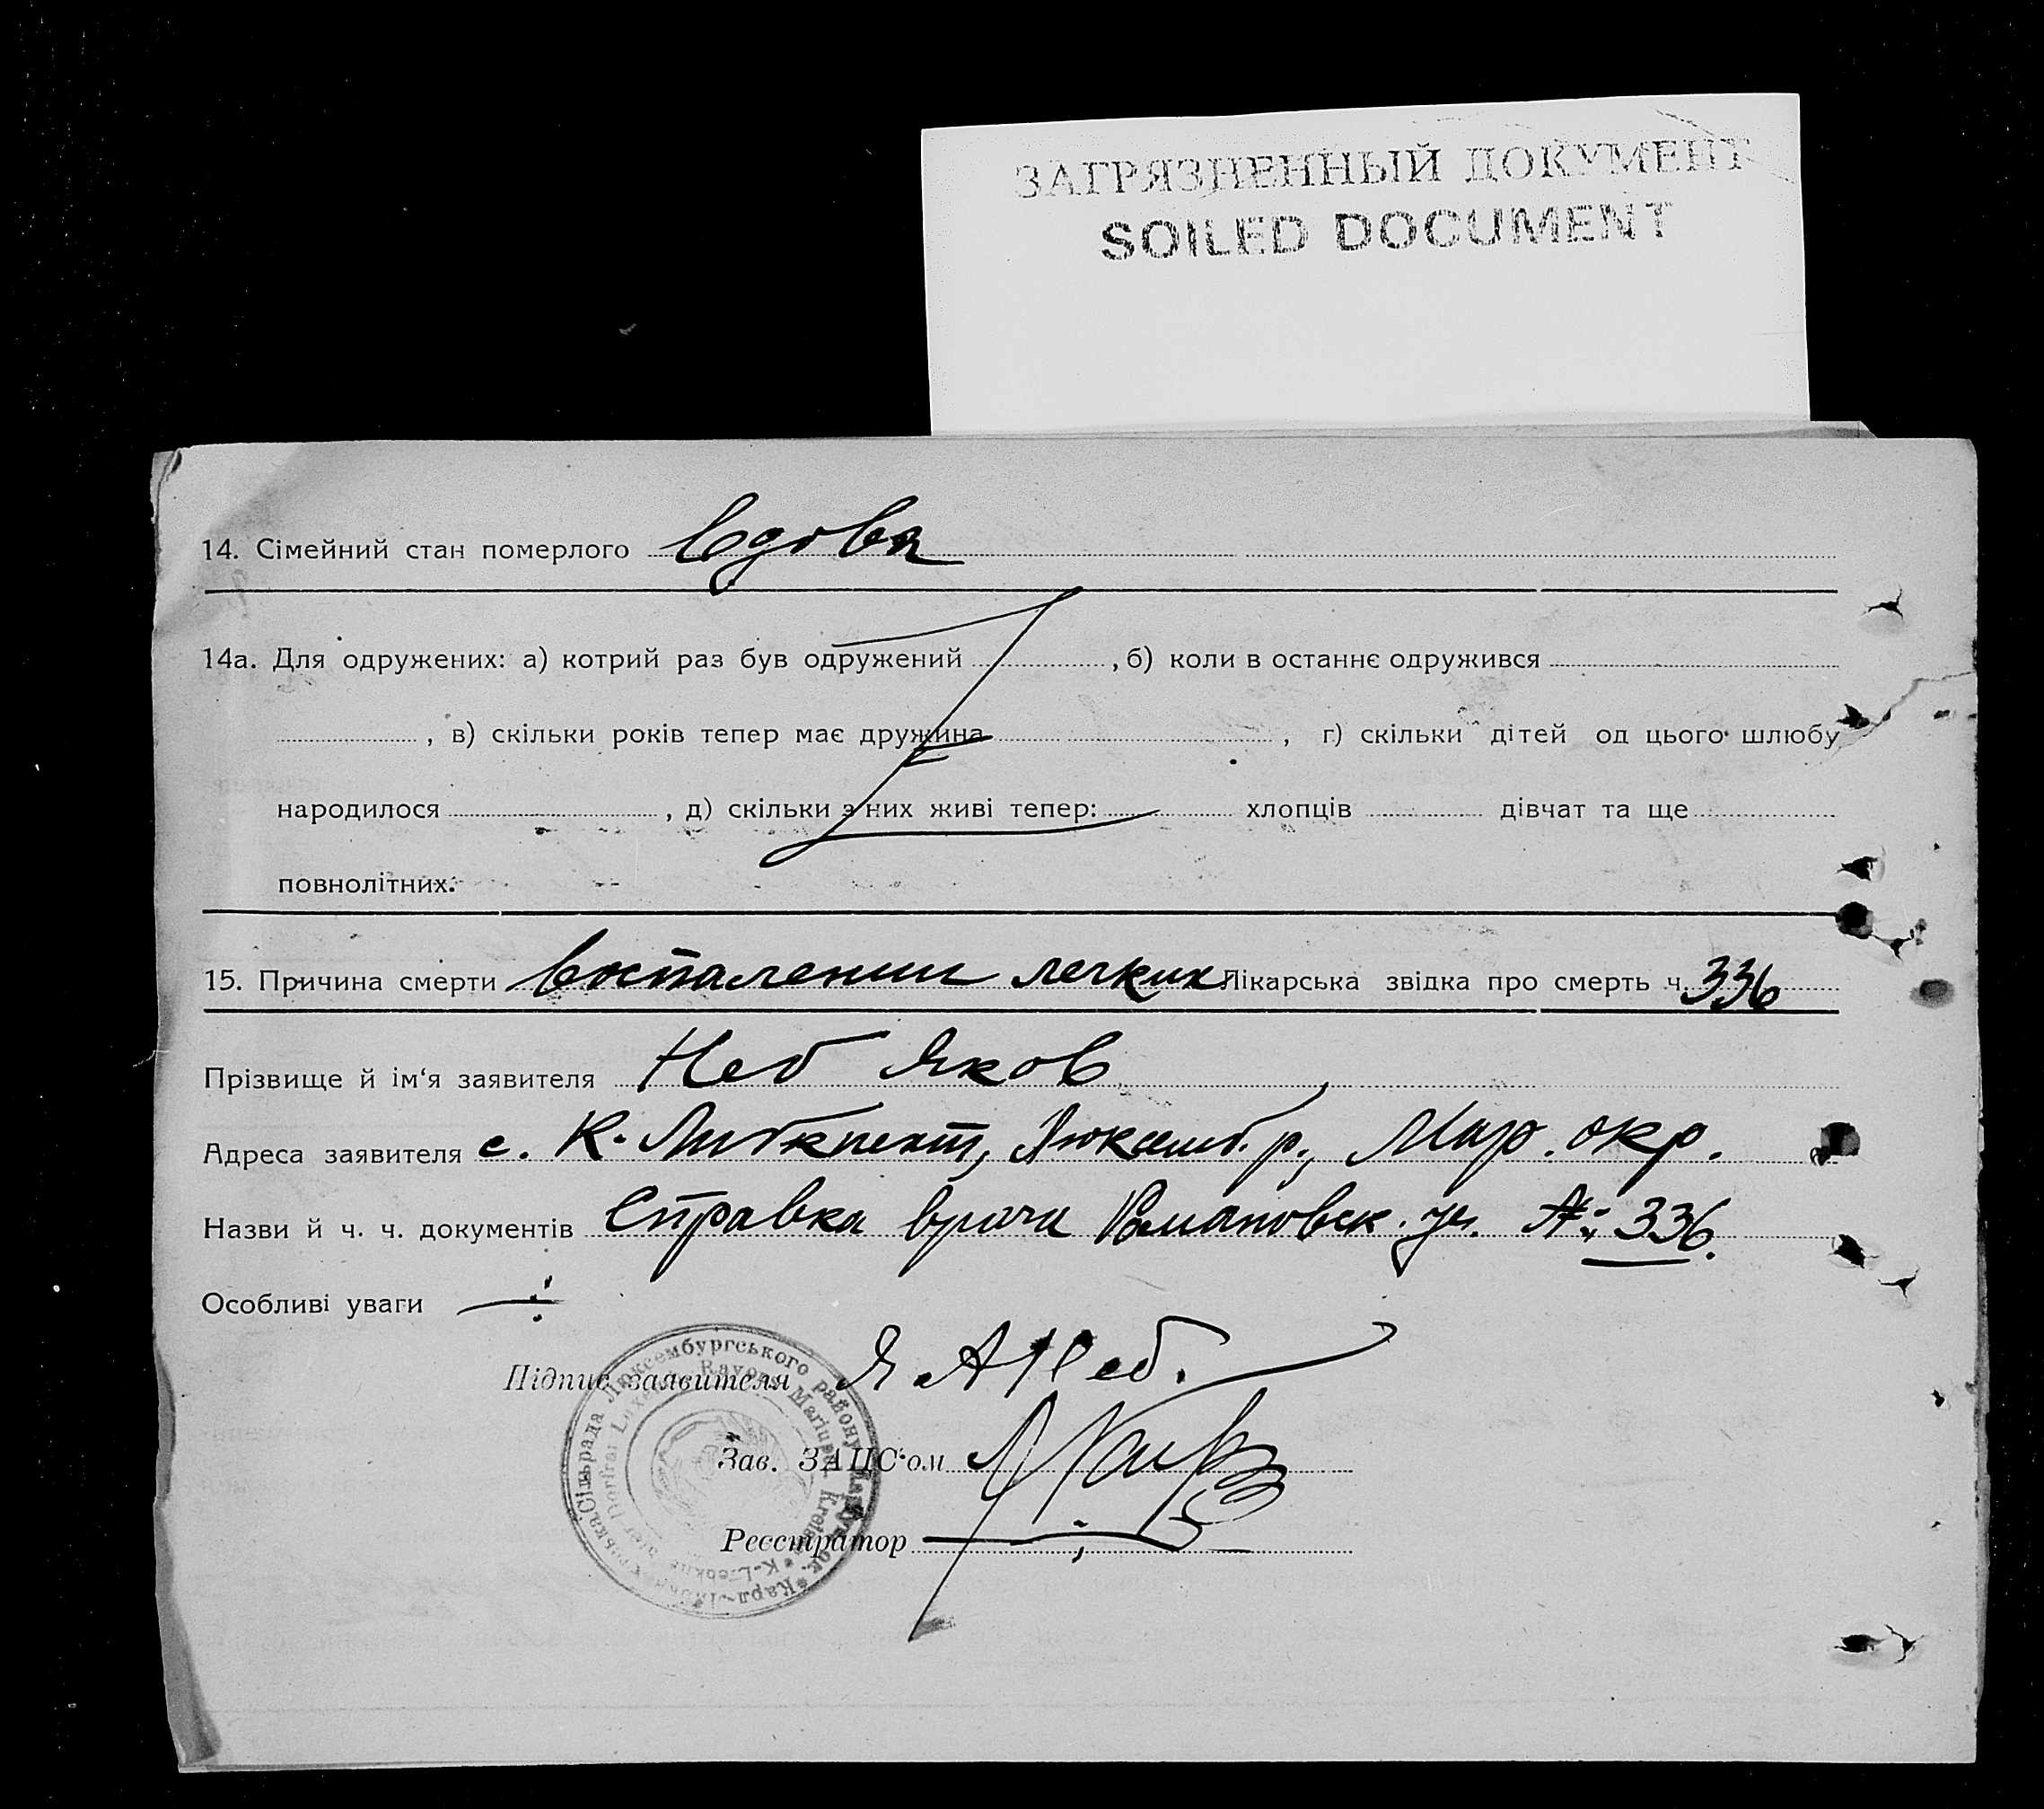 ЗАГРЯЗНЕННЫЙ ДОКУМЕНТ
SOILED DOCUMENT
14. Сімейний стан померлого вдова
14а. Для одружених: а) котрий раз був одружений , б) коли в останнє одружився
, в) скільки років тепер має дружина , г) скільки дітей од цього шлюбу
народилося , д) скільки з них живі тепер: хлопців дівчат та ще
повнолітних.
15. Причина смерти воспалении легких Лікарська звідка про смерть ч. 336
Прізвище й ім‘я заявителя Неб Яков
Адреса заявителя с. К. Либкнехт, Люксемб. р., Мар. окр.
Назви й ч. ч. документів Справка врача Романовск. уч. №: 336.
Особливі уваги
Підпис заявителя Я А Неб.
Зав. ЗАЦС‘ом
Реєстратор
Сільрада Люксембургського району